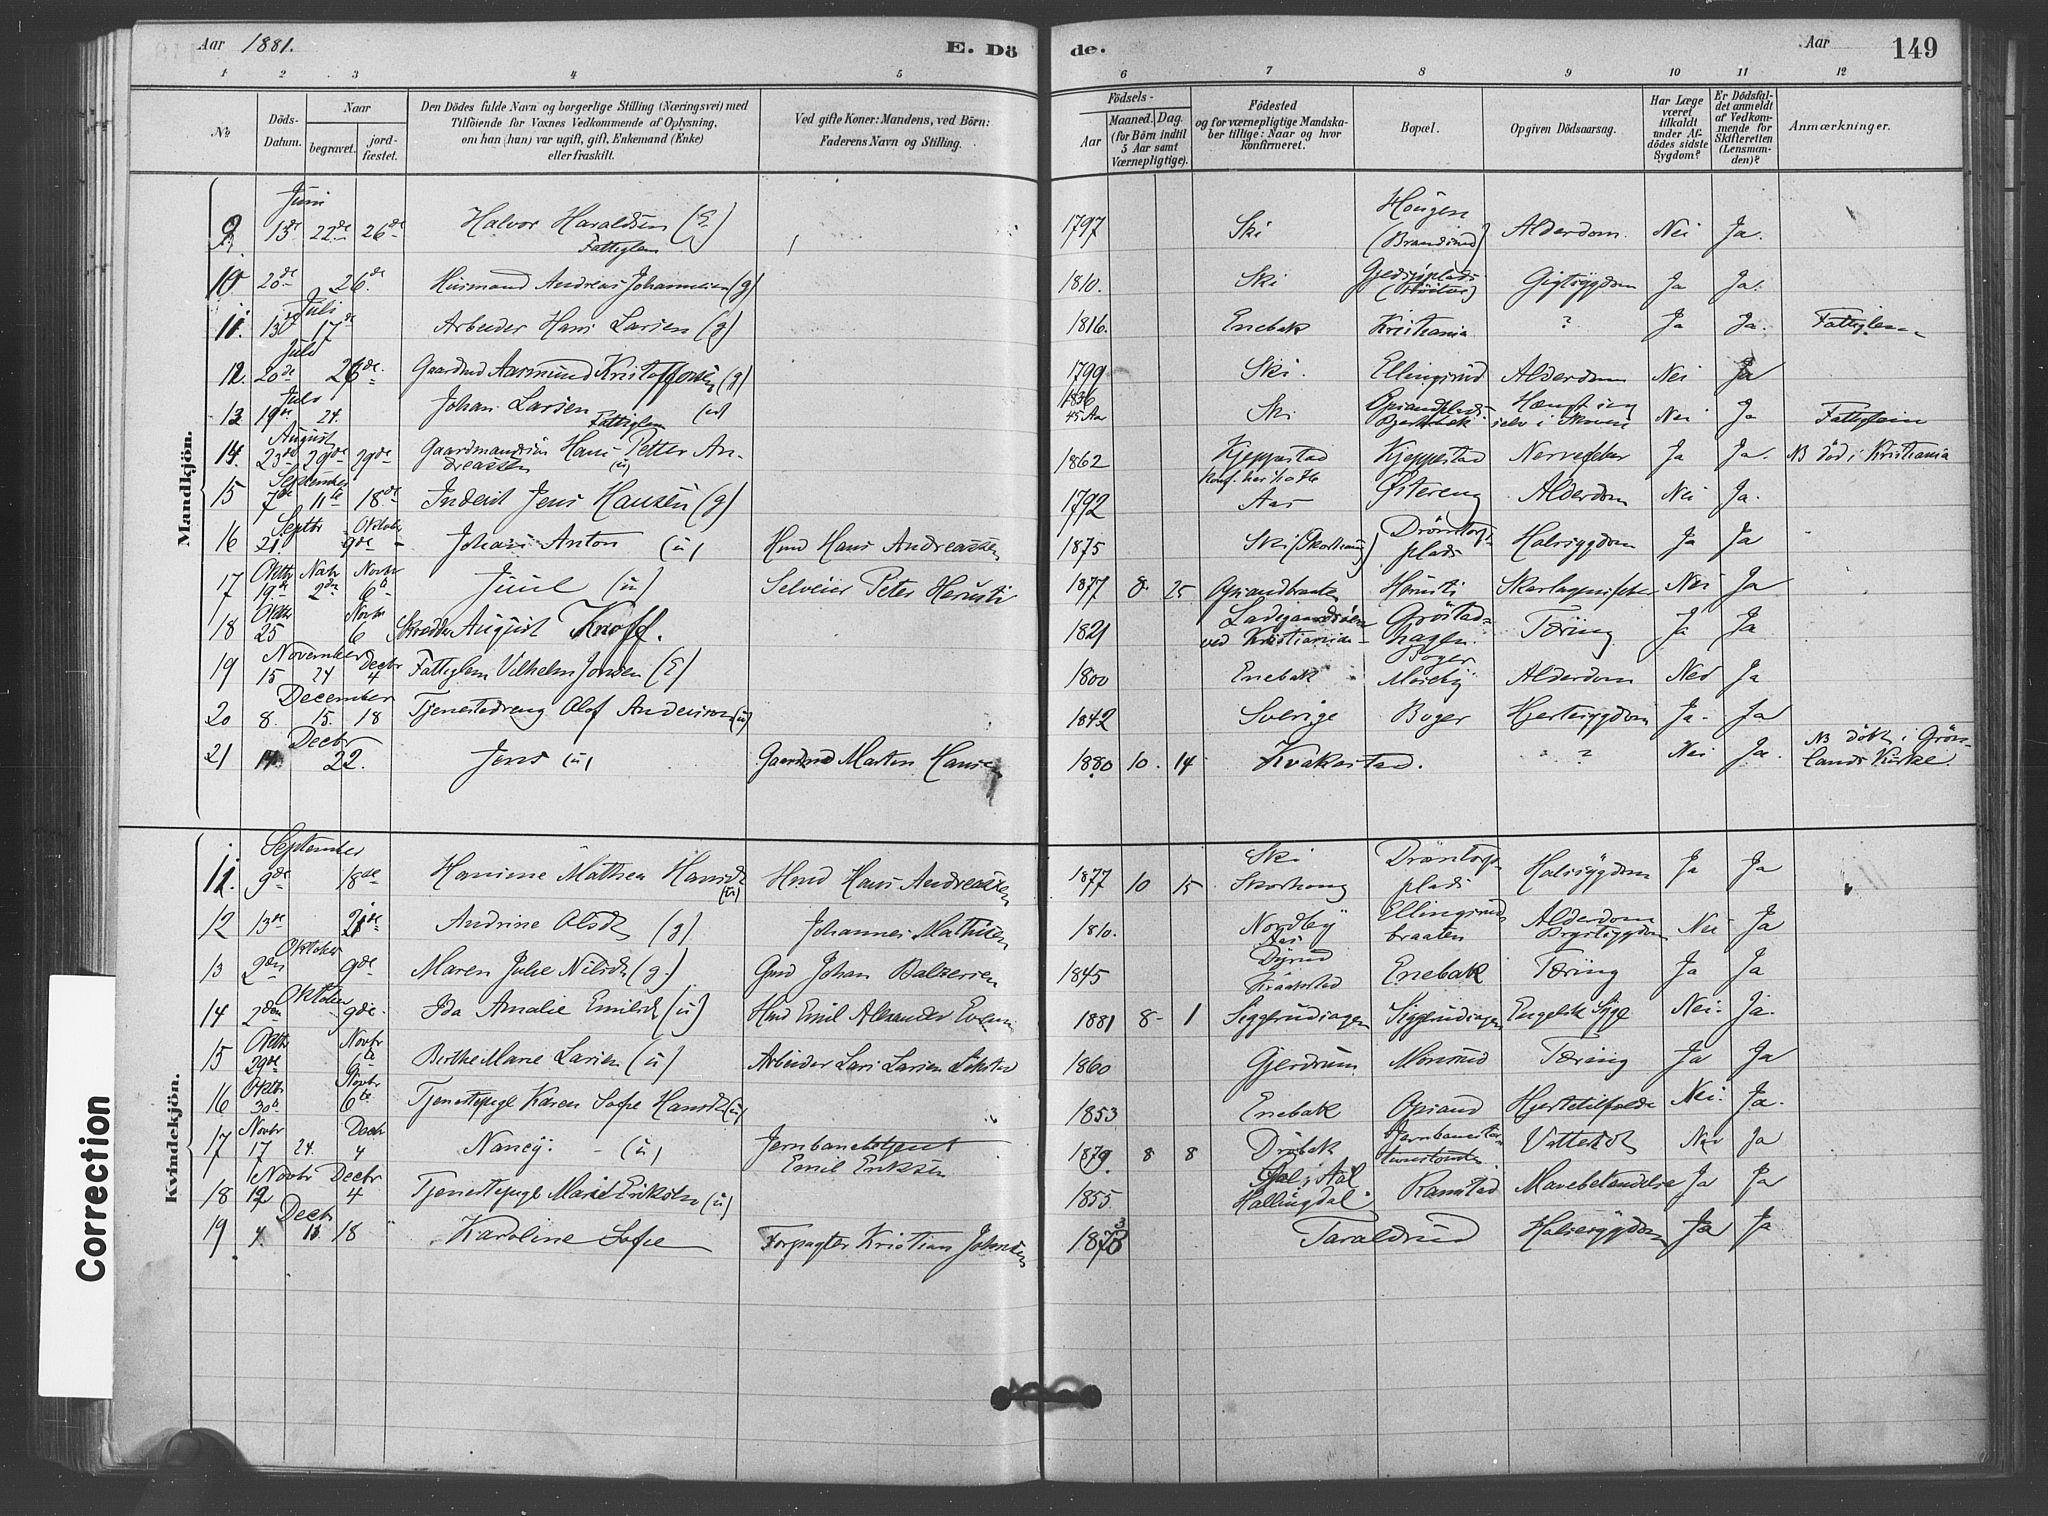 Aar 1881. E. Dö de. Aar 149
1 2 3 4 5 6 7 8 9 10 11 12
No Döds-Datum. Naar begravet. jord-fæstet. Den Dödes fulde Navn og borgerlige Stilling (Næringsvei) med Tilföiende for Voxnes Vedkommende af Oplysning, om han (hun) var ugift, gift, Enkemand (Enke) eller fraskilt. Ved gifte Koner: Mandens, ved Börn: Faderens Navn og Stilling. Födsels- Aar Maaned. Dag. (for Börn indtil 5 Aar samt Værnepligtige). Födested og for værnepligtige Mandskaber tillige: Naar og hvor konfirmeret. Bopæl. Opgiven Dödsaarsag. Har Læge været tilkaldt under Afdödes sidste Sygdom? Er Dödsfaldet anmeldt af Vedkommende for Skifteretten (Lensmanden)? Anmærkninger.
Mandkjön.
Juni
9. 13de 22de 26de Halvor Haraldsen (E) Fattiglem 1797 Ski Hougen Alderdom. Nei Ja.
10 20de 26. Husmand Andreas Johannesen (g) 1810. Ski Gjedsjöplads Gigtsygdom Ja Ja.
Juli
11. 13de 17de Arbeider Hans Larsen (g) 1816. Enebak Kristiania ? Ja Ja. Fattiglem
Juli
12. 20de 26de Gaardmd Aasmund Kristoffersen (g) 1799 Ski. Ellingsrud Alderdom Nei Ja
Juli
13 19de 24. Johan Larsen Fattiglem (u) 1836 45 Aar Ski Nei Ja Fattiglem
August
14. 23de 29de 29de Gaardmandssön Hans Petter Andreassen (u) 1862 Kjeppestad Konf. her 1/10 76 Kjeppestad Nervefeber Ja Ja. NB död i Kristiania
September
15 7de 11te 18de Inderst Jens Hansen (g) 1792 Aas Östereng Alderdom Nei Ja.
Septbr Oktober
16 21. 9de Johan Anton (u) Hmd Hans Andreassen 1875 Ski (Skorhaug) Drömtorp plads Halssygdom Ja Ja
Oktbr Novbr Novbr
17 19de 2den 6te Juul (u) Selveier Peter Herusti 1877 8 25 Opsandbraaten Herusti Skarlagensfeber Nei Ja
Oktbr Novbr
18 25 6 Skrædder August Knoff. 1821 Ladegaardsöen ved Kristiania Gröstadhagen Tæring Ja Ja
November Decbr
19 15 24 4 Fattiglem Vilhelm Jonsen (E) 1800 Enebak Boger Moseby Alderdom Nei Ja
December
20 8. 15. 18 Tjenestedreng Olof Anderson (u) 1842 Sverige Boger Hjertesygdom Ja. Ja
Decbr
21 14 22. Jens (u) Gaardmd Martin Hansen 1880 10. 14 Kvakestad. ? Nei Ja. NB döbt i Grönlands Kirke.
Kvindekjön.
September
11. 9de 18de Hanine Mathea Hansdt (u) Hmd Hans Andreassen 1877 10 15 Ski Skorhaug Dröntorp plads Halssygdom Ja Ja
12 13de 21de Andrine Olsdt (g) Johannes Mathisen 1810. Nordby Aas Ellingsrudbraaten Alderdom Brystsygdom Nei Ja
Oktober
13 2den 9de Maren Julie Nilsdt (g.) Gmd Johan Balzersen 1845 Dyrud Kraakstad Enebak Tæring Ja Ja
Oktober
14 2den 9de Ida Amalie Emilsdt (u) Hmd Emil Alexander Evensen 1881 8 1 Siggerudiagen Siggerudiagen Engelsk Syge Nei. Ja.
Oktbr Novbr
15 29de 6te Berthe Marie Larsen (u) Arbeider Lars Larsen 1860 Gjerdrum Monsrud Tæring Ja Ja
Oktbr Novbr
16 30te 6te Tjenestepige Karen Sofie Hansdt (u) 1853 Enebak Opsand Hjertetilfælde Nei. Ja.
Novbr Decbr
17 17 24. 4 Nancy. (u) Jernbanebetjent Emil Eriksen 1879 8 8 Dröbak Vattersot Nei Ja
Novbr Decbr
18 12 4 Tjenestepige Marie Eriksdn (u) 1855 Gol i Aal Hallingdal Ramstad Mavebetændelse Ja Ja
Decbr
19 4. 11. 18 Karoline Sofie Forpagter Kristian Johnsen 1873 Taraldrud Halssygdom Ja Ja
Correction